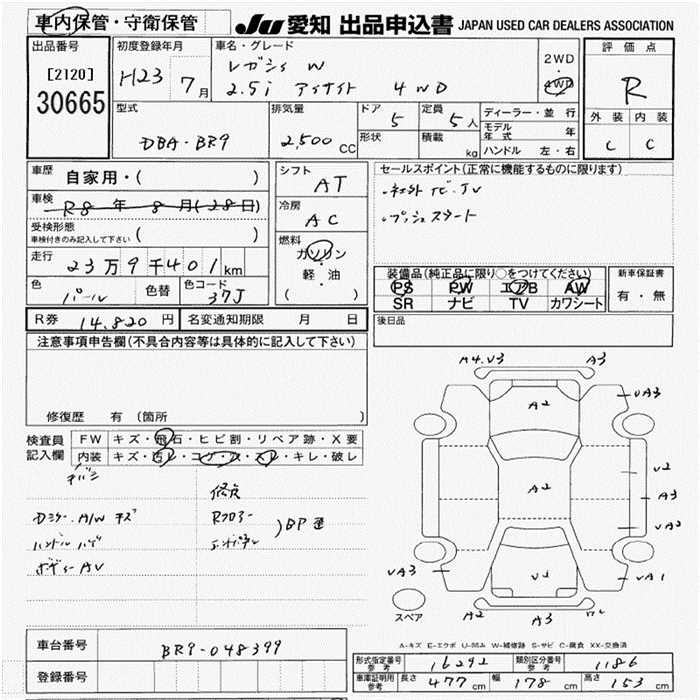 車内保管・守衛保管
JU 愛知 出品申込書 JAPAN USED CAR DEALERS ASSOCIATION
出品番号
[2120]
30665
初度登録年月
H23 7月
車名・グレード
レガシィ W
2.5i アイサイト 4WD
2WD
4WD
評価点
R
外装 内装
C C
型式
DBA-BR9
排気量
2,500 CC
ドア 5
形状
定員 5人
積載 kg
ディーラー・並行
モデル年式 年
ハンドル 左・右
車歴
自家用・( )
車検
R8年8月(28日)
受検形態
車検付きのみ記入して下さい ( )
走行
23万9千401km
色 パール 色替 色コード 37J
R券 14.820円 名変通知期限 月 日
シフト AT
冷房 AC
燃料
ガソリン
・
軽・油
( )
セールスポイント(正常に機能するものに限ります)
・ナビ.TV
・プッシュスタート
装備品(純正品に限り○をつけてください)
PS PW エアB AW
SR ナビ TV カワシート
新車保証書
有・無
後日品
注意事項申告欄(不具合内容等は具体的に記入して下さい)
修復歴 有(箇所 )
検査員記入欄
FW キズ・飛石・ヒビ割・リペア跡・X要
内装 キズ・汚レ・コゲ・穴・スレ・キレ・破レ
A/W キズ
ハンドル
ボデー AU
修復
Rフロアー
エンドパネル
車台番号 BR9-048399
登録番号
A4.U3 A3
UA3
A2
U2
A2
A3
UA2
UA3
U1
UA1
A2
A3
スペア
A-キズ E-エクボ U-凹み W-補修跡 S-サビ C-腐食 XX-交換済
形式指定番号 参考 16292 類別区分番号 参考 1186
車庫証明用 参考 長さ 477cm 幅 178cm 高さ 153cm